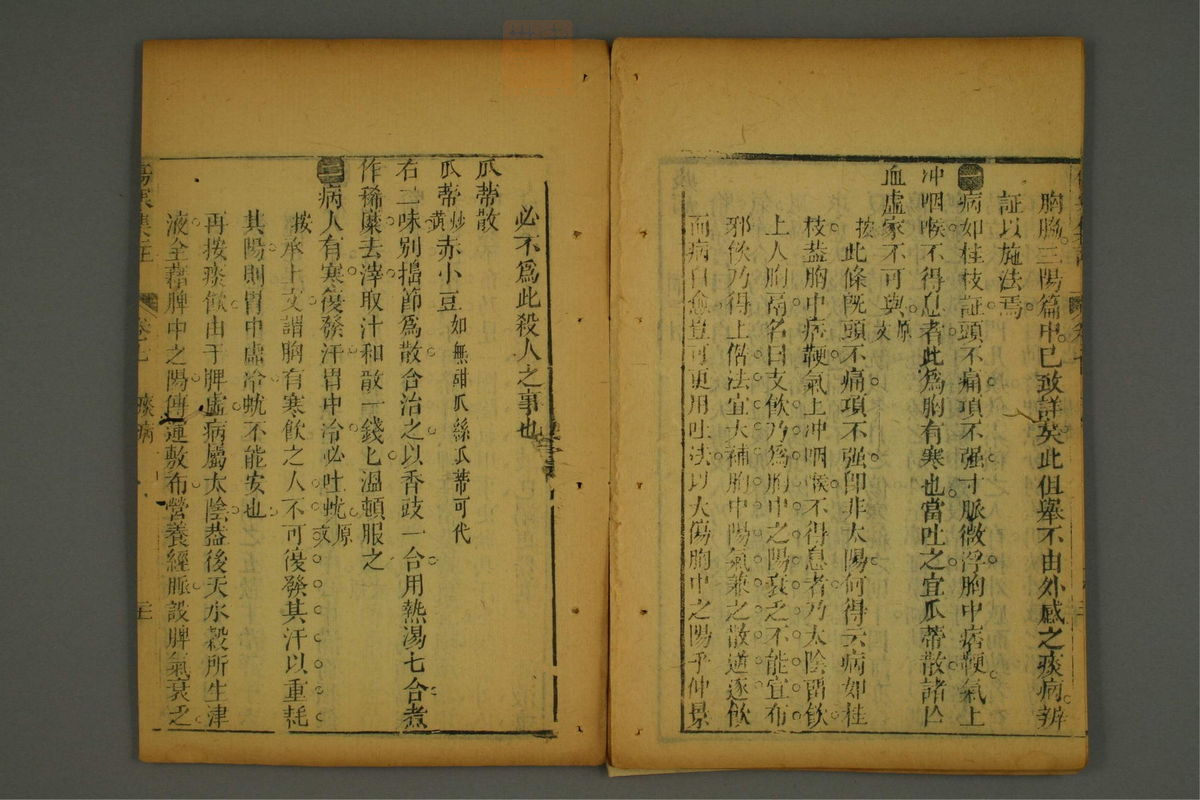 胸脇三陽篇中已致詳矣此但舉不由外感之痰病辨
証以施法焉
病如桂枝証頭不痛項不强寸脈微浮胸中痞鞕氣上
冲咽喉不得息者此爲胸有寒也當吐之宜瓜蒂散諸亡
血虛家不可與原文
按此條既頭不痛項不强卽非太陽何得云病如桂
枝蓋胸中痞鞕氣上冲咽喉不得息者乃太陰留飲
上人胸膈名曰支飲乃爲胸中之陽衰乏不能宣布
邪飲乃得上僭法宜大補胸中陽氣兼之散逆逐飲
而病自愈豈可更用吐法以大傷胸中之陽乎仲景
必不爲此殺人之事也
瓜蒂散
瓜蒂炒黃赤小豆如無甜瓜絲瓜蒂可代
右二味別搗節爲散合治之以香豉一合用熱湯七合煮
作稀糜去滓取汁和散一錢匕溫頓服之
病人有寒復發汗胃中冷必吐蚘原文
按承上文謂胸有寒飲之人不可復發其汗以重耗
其陽則胃中虛冷蚘不能安也
再按痰飲由于脾虛病屬太陰蓋後天水穀所生津
液全藉脾中之陽傳運敷布營養經脈設脾氣衰乏
傷寒集註 卷七 痰病 三